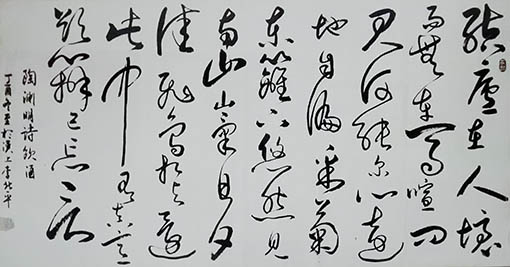 結廬在人境
而無車馬喧問
君何能尔心遠
地自偏采菊
東籬下悠然見
南山山氣日夕
佳飛鳥相与還
此中有真意
欲辨已忘言
陶渊明詩飲酒
丁酉冬於漢上李